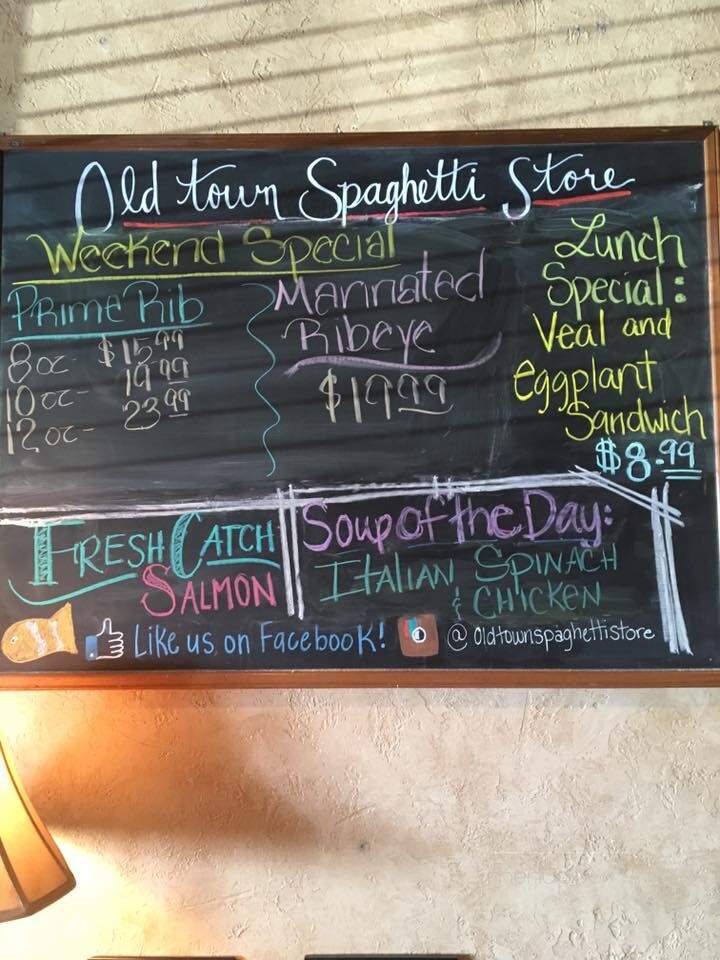 Old town Spaghetti Store
Weekend Special
Prime Rib
8 oz- $15.99
10 oz- 19.99
12 oz- 23.99
Marinated
Ribeye
$19.99
Lunch
Special:
Veal and
eggplant
Sandwich
$8.99
FRESH CATCH
SALMON
Soup of the Day:
ITALIAN SPINACH
& CHICKEN
Like us on Facebook!
@oldtownspaghettistore